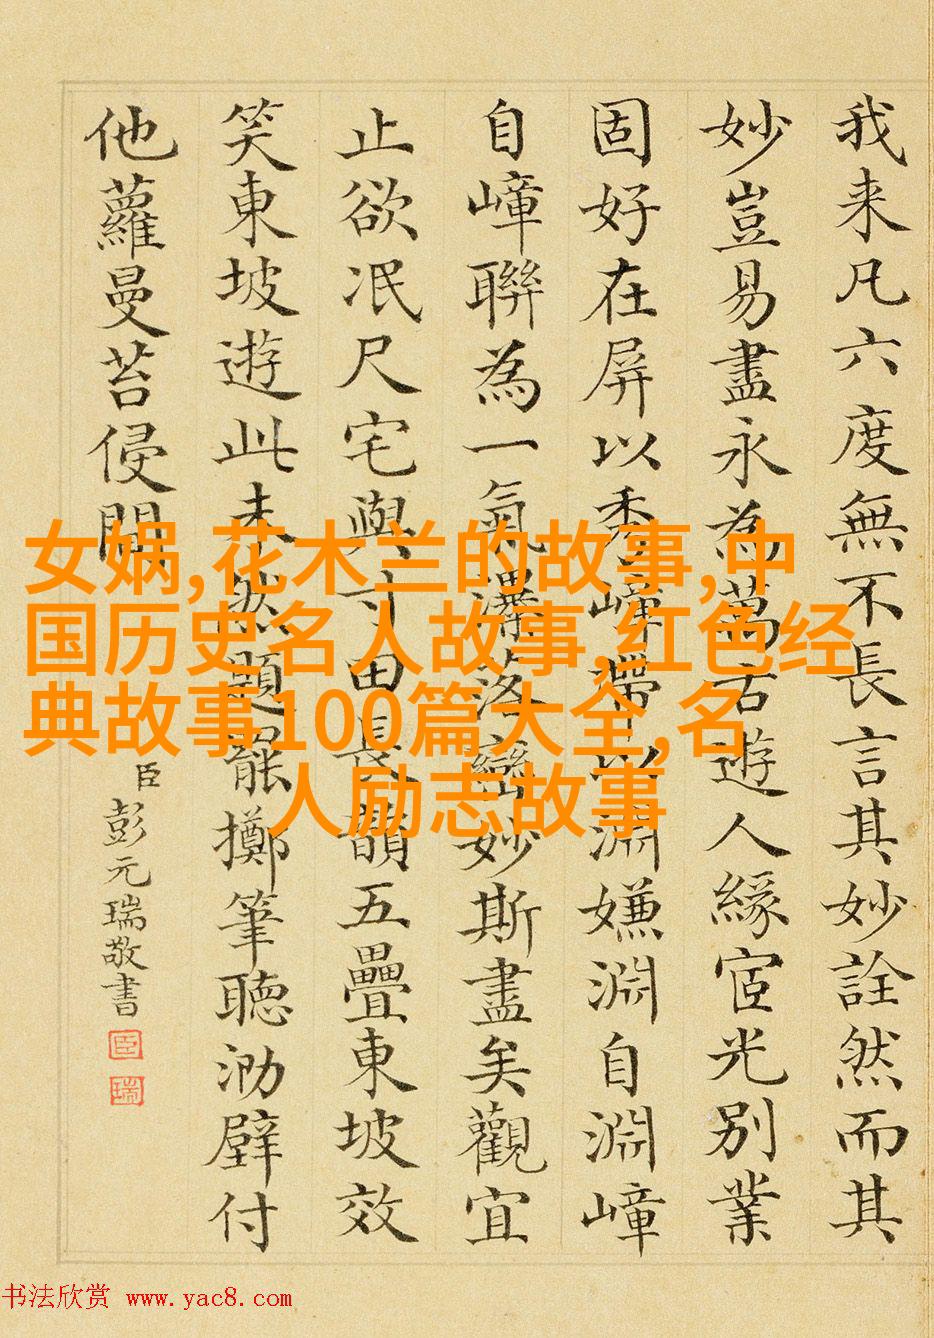 我来凡六度無不長言其妙詮然而其
妙豈易盡永為萬古遊人緣宧光別業
固好在屏以秀嶂帶以淵嫌淵自淵嶂
自嶂聯為一氣瀑落巒妙斯盡矣觀宜
止欲泯尺宅與寸田長韻五疊東坡效
笑東坡遊此未然題罷擲筆聽泐壁付
他蘿曼苔侵間
臣彭元瑞敬書
臣
瑞
女娲,花木兰的故事,中
国历史名人故事,红色经
典故事100篇大全,名
人励志故事
书法欣赏 www.yac8.com